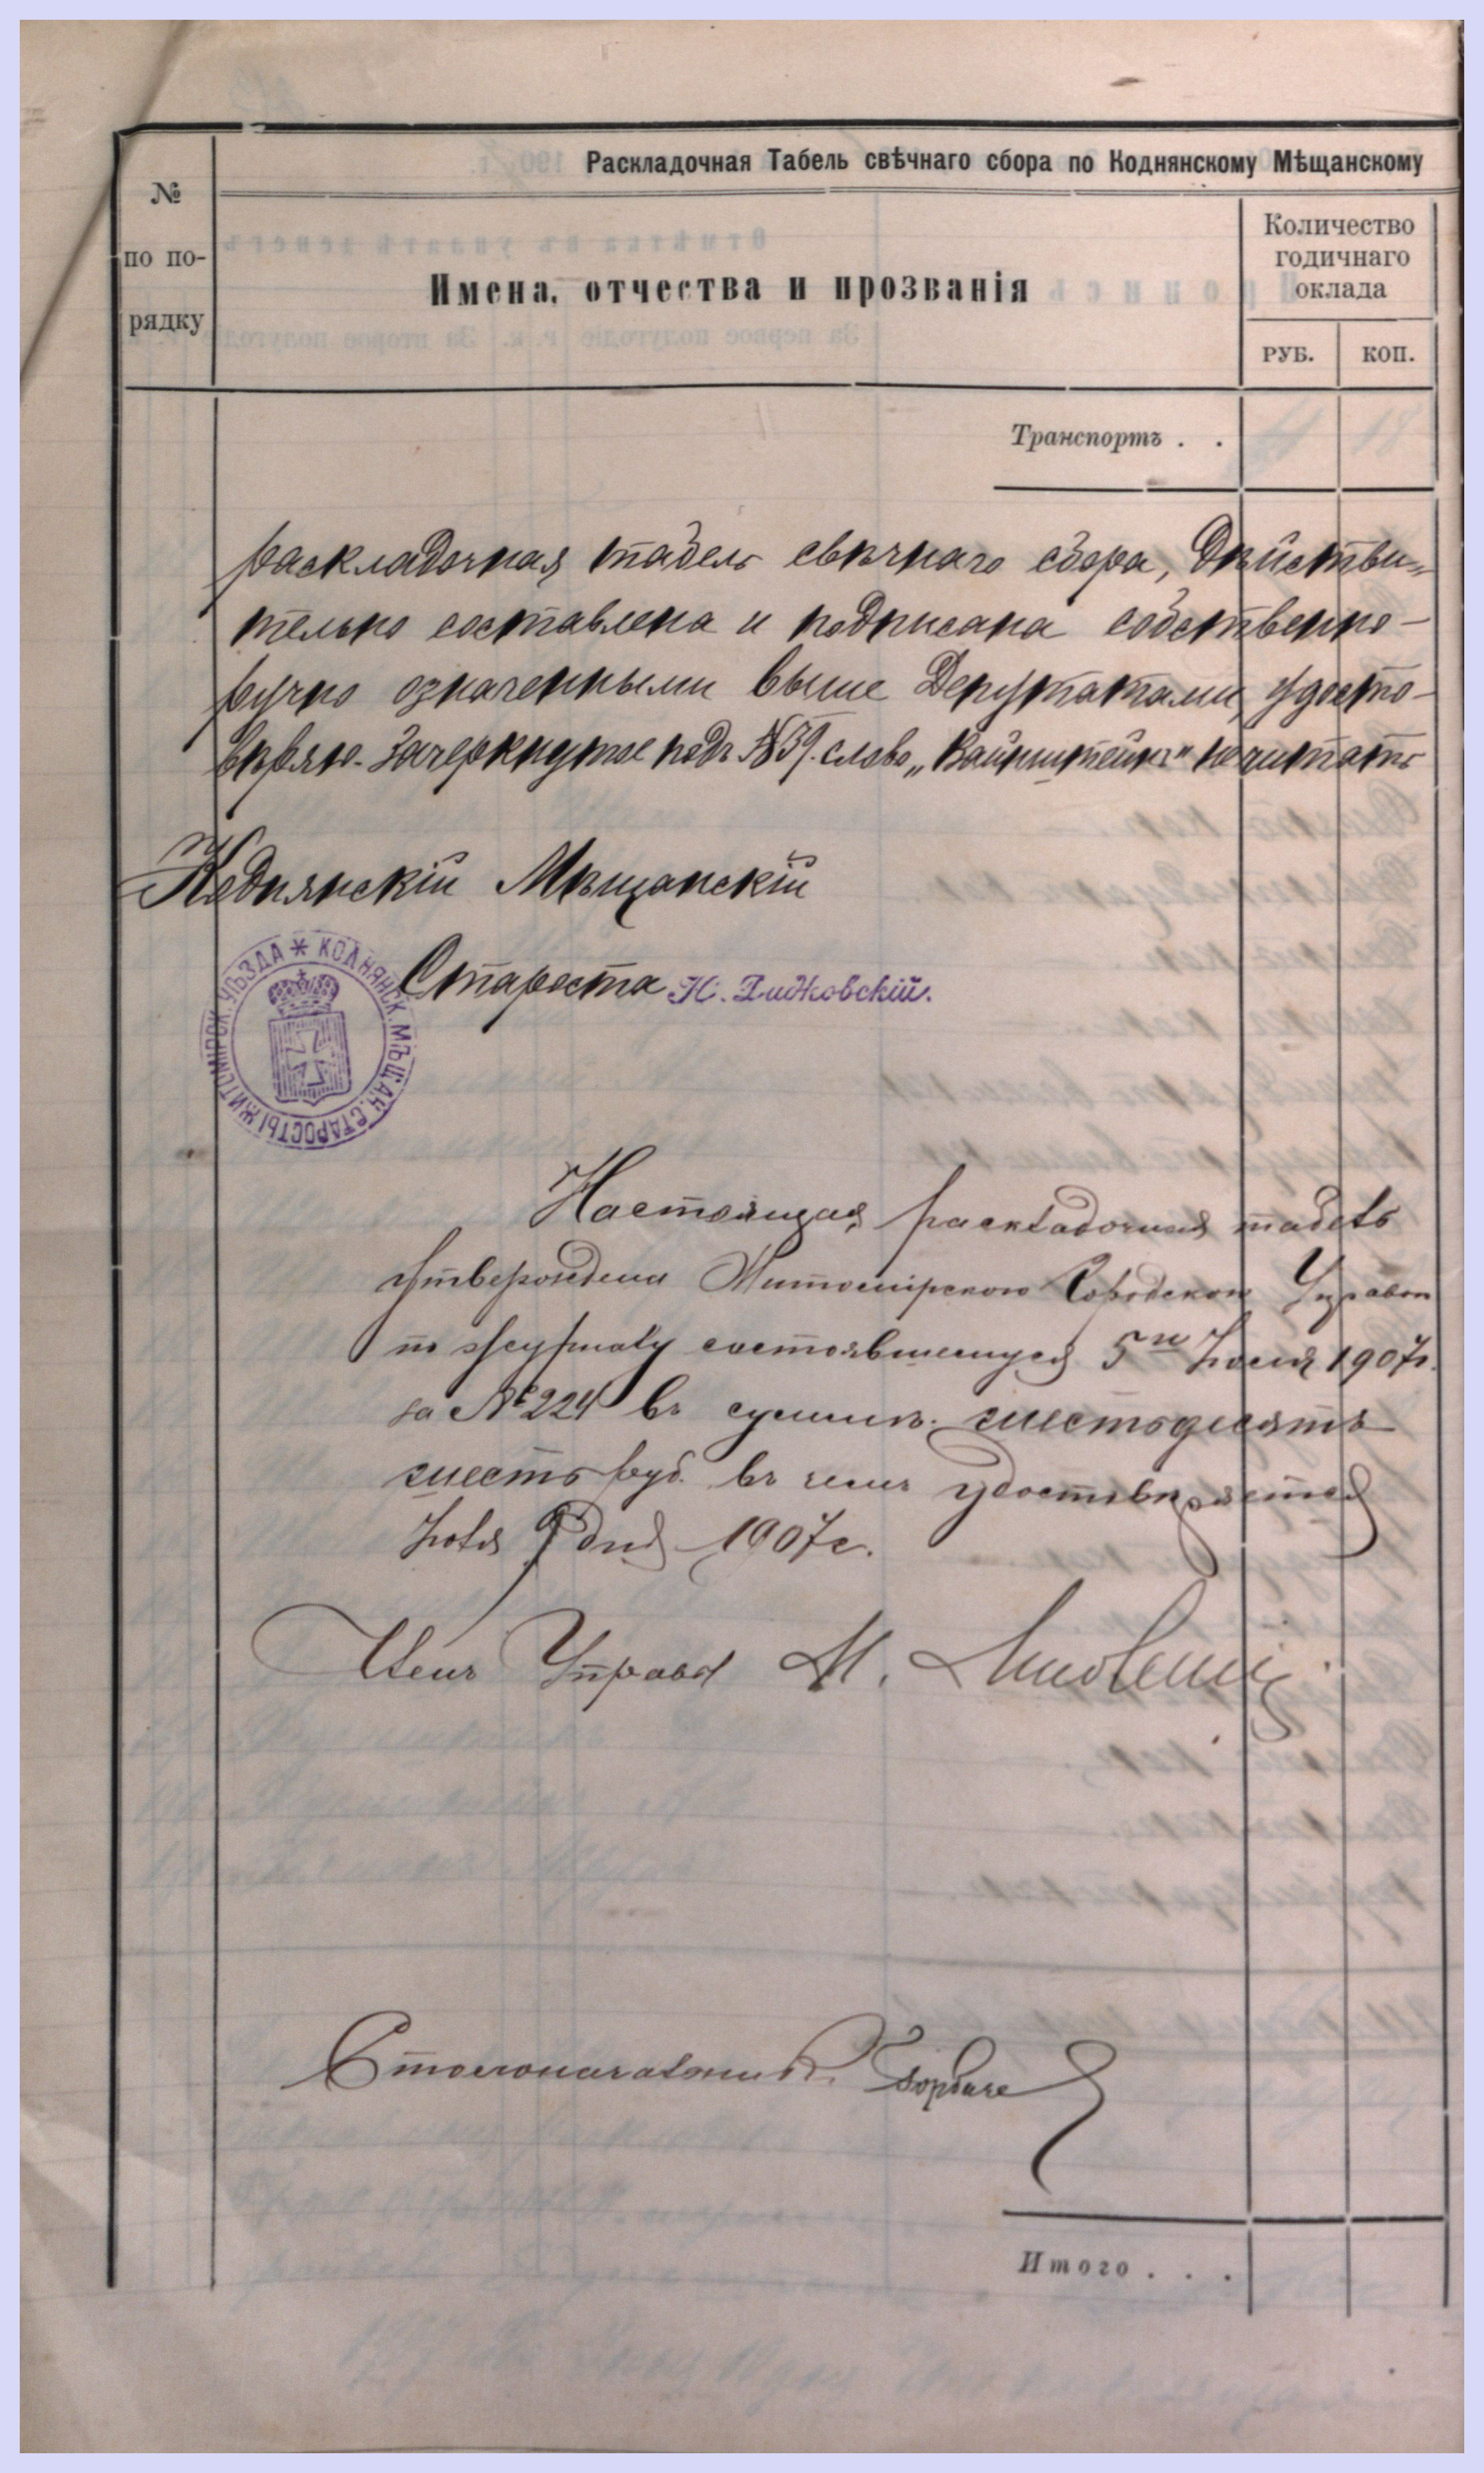 Раскладочная Табель свѣчнаго сбора по Коднянскому Мѣщанскому
№
по по-
рядку
Имена, отчества и прозванія
Количество
годичнаго
оклада
РУБ.
КОП.
Транспортъ . .
раскладочная табель свѣчнаго сбора, дѣйстви=
тельно составлена и подписана собственно-
ручно означенными выше Депутатами, удосто-
вѣряю. Зачеркнутое подъ №39. слово „Вайнштейнъ" не читать
Коднянскій Мѣщанскій
Староста
КОДНЯНСК. МѢЩАН. СТАРОСТЫ ЖИТОМІРСК. УѢЗДА
Настоящая раскладочная табель
утверждена Житомірскою Городскою Управою
по журналу состоявшемуся 5го Іюля 1907г.
за №224 въ суммѣ шестьдесятъ
шесть руб. въ чемъ удостовѣряется
Іюля 9 дня 1907г.
Членъ Управы М.
Столоначальникъ
Итого . . .